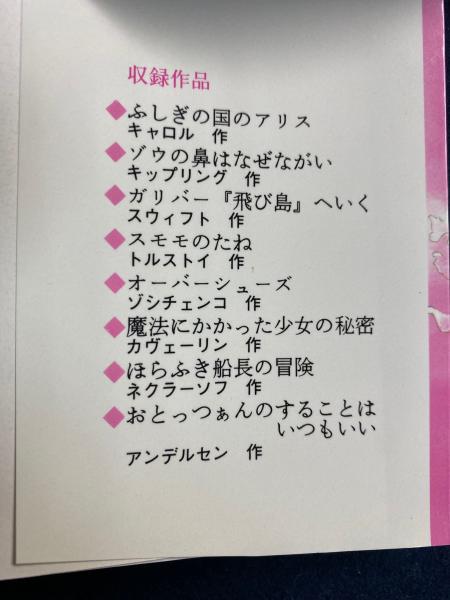 収録作品
◆ふしぎの国のアリス
キャロル 作
◆ゾウの鼻はなぜながい
キップリング 作
◆ガリバー『飛び島』へいく
スウィフト 作
◆スモモのたね
トルストイ 作
◆オーバーシューズ
ゾシチェンコ 作
◆魔法にかかった少女の秘密
カヴェーリン 作
◆ほらふき船長の冒険
ネクラーソフ 作
◆おとっつぁんのすることは
いつもいい
アンデルセン 作